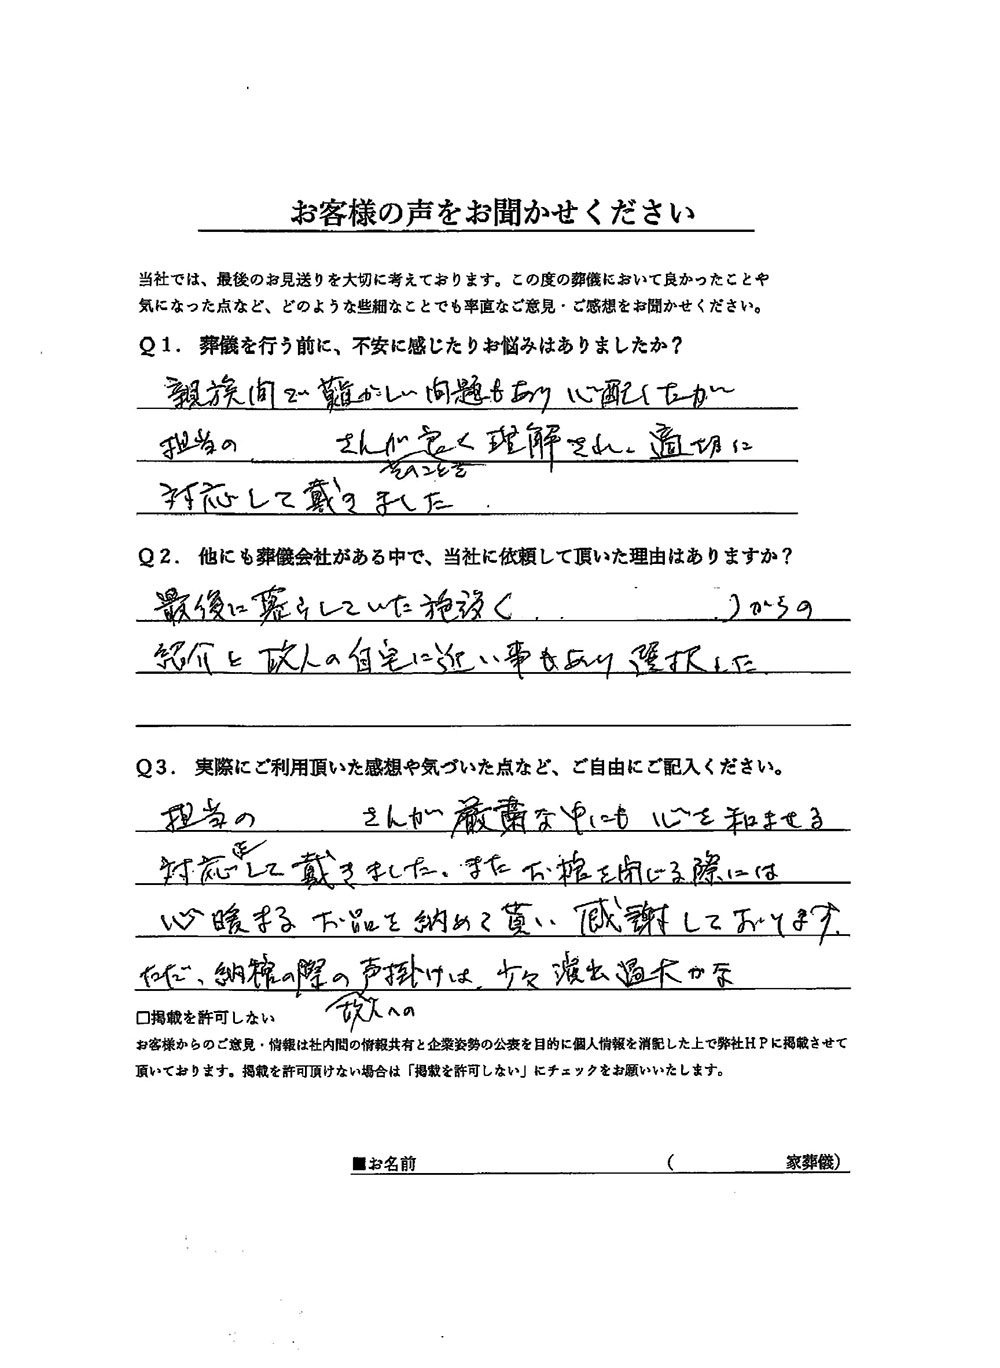 お客様の声をお聞かせください
当社では、最後のお見送りを大切に考えております。この度の葬儀において良かったことや
気になった点など、どのような些細なことでも率直なご意見・ご感想をお聞かせください。
Q1. 葬儀を行う前に、不安に感じたりお悩みはありましたか？
親族間で難かしい問題もあり心配したが
担当の さんが良く理解され、適切に
そのことを
対応して戴きました
Q2. 他にも葬儀会社がある中で、当社に依頼して頂いた理由はありますか？
最後に暮らしていた施設( )からの
紹介と故人の自宅に近い事もあり選択した
Q3. 実際にご利用頂いた感想や気づいた点など、ご自由にご記入ください。
担当の さんが厳粛な中にも心を和ませる
対応をして戴きました。またお棺を閉じる際には
心暖まるお品を納めて貰い感謝しております。
ただ、納棺の際の声掛けは、少々演出過大かな
故人への
□掲載を許可しない
お客様からのご意見・情報は社内間の情報共有と企業姿勢の公表を目的に個人情報を消配した上で弊社HPに掲載させて
頂いております。掲載を許可頂けない場合は「掲載を許可しない」にチェックをお願いいたします。
■お名前 ( 家葬儀)